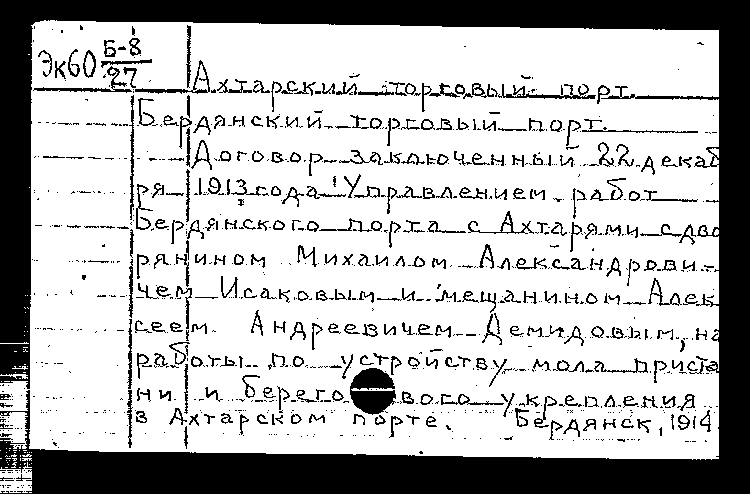 Эк60 Б-8
27
Ахтарский торговый порт.
Бердянский торговый порт.
Договор заключенный 22 декаб
ря 1913 года Управлением работ
Бердянского порта с Ахтярями с дво
рянином Михаилом Александрови-
чем Исаковым и мещанином Алек
сеем Андреевичем Демидовым, на
работы по устройству мола приста
ни и берегового укрепления
в Ахтарском порте. Бердянск, 1914